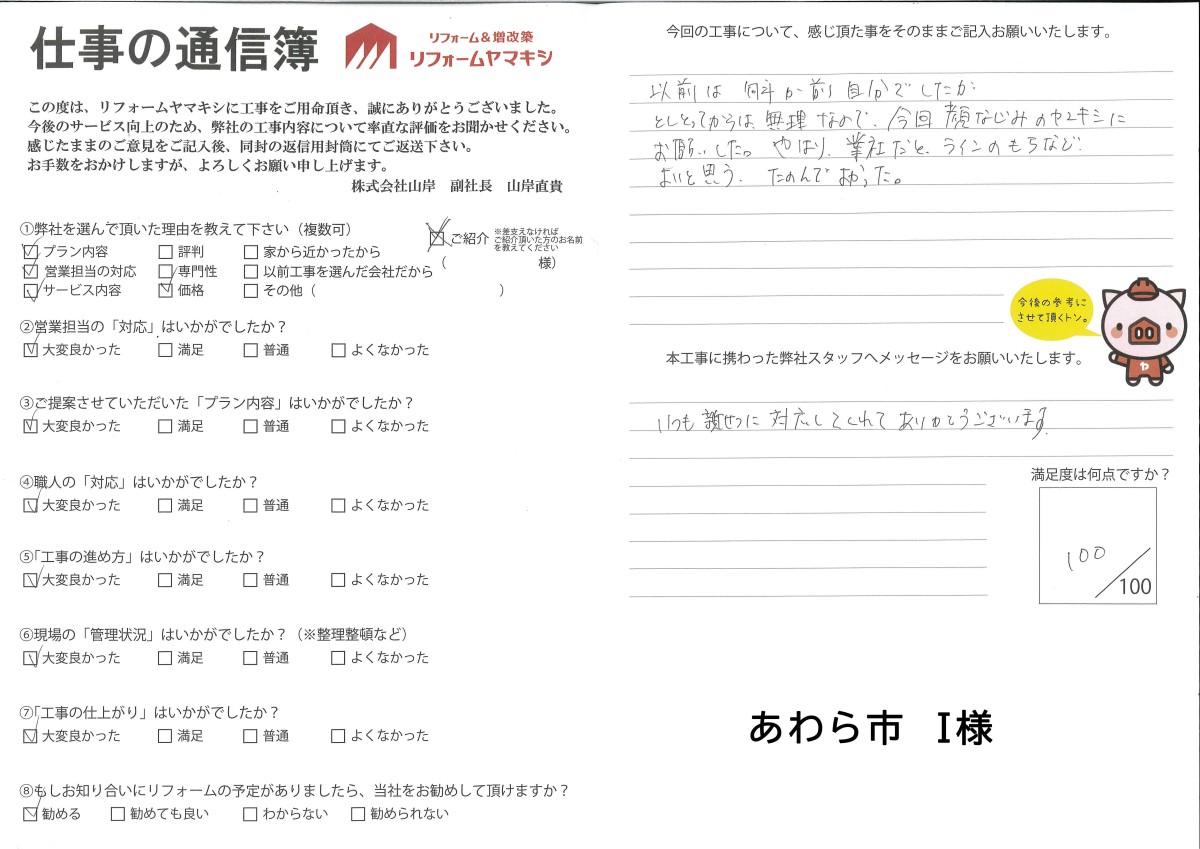 仕事の通信簿
リフォーム&増改築
リフォームヤマキシ
この度は、リフォームヤマキシに工事をご用命頂き、誠にありがとうございました。
今後のサービス向上のため、弊社の工事内容について率直な評価をお聞かせください。
感じたままのご意見をご記入後、同封の返信用封筒にてご返送下さい。
お手数をおかけしますが、よろしくお願い申し上げます。
株式会社山岸 副社長 山岸直貴
①弊社を選んで頂いた理由を教えて下さい（複数可）
プラン内容 評判 家から近かったから
営業担当の対応 専門性 以前工事を選んだ会社だから
サービス内容 価格 その他（ ）
ご紹介 ※差支えなければ
ご紹介頂いた方のお名前
を教えてください
（ 様）
②営業担当の「対応」はいかがでしたか？
大変良かった 満足 普通 よくなかった
③ご提案させていただいた「プラン内容」はいかがでしたか？
大変良かった 満足 普通 よくなかった
④職人の「対応」はいかがでしたか？
大変良かった 満足 普通 よくなかった
⑤「工事の進め方」はいかがでしたか？
大変良かった 満足 普通 よくなかった
⑥現場の「管理状況」はいかがでしたか？（※整理整頓など）
大変良かった 満足 普通 よくなかった
⑦「工事の仕上がり」はいかがでしたか？
大変良かった 満足 普通 よくなかった
⑧もしお知り合いにリフォームの予定がありましたら、当社をお勧めして頂けますか？
勧める 勧めても良い わからない 勧められない
今回の工事について、感じ頂た事をそのままご記入お願いいたします。
以前は 何年か前 自分でしたが
としとってからは 無理なので、今回 顔なじみのヤマキシに
お願いした。やはり、業社だと、ラインのもちなど
よいと思う。たのんでよかった。
今後の参考に
させて頂くトン。
ヤ
本工事に携わった弊社スタッフへメッセージをお願いいたします。
いつも 親せつに 対応してくれて ありがとうございます。
満足度は何点ですか？
100
/100
あわら市 I様